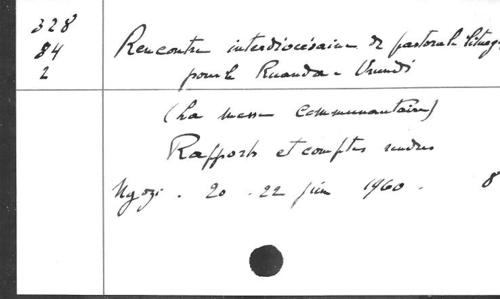 328 Rencontre interdiocésaine de pastorale liturg.
84
2 pour le Ruanda-Urundi
(La messe communautaire)
Rapports et comptes rendus
Ngozi . 20 - 22 juin 1960 . 8